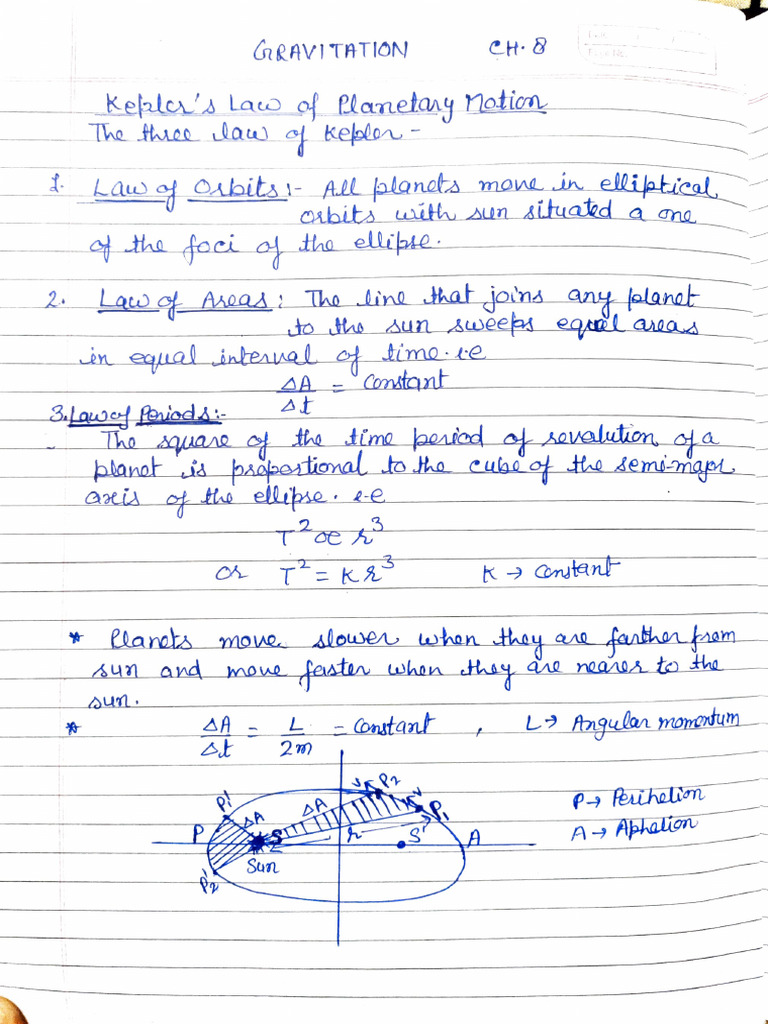 GRAVITATION CH. 8
Kepler's Law of Planetary Motion
The three law of Kepler -
1. Law of Orbits :- All planets move in elliptical
orbits with sun situated a one
of the foci of the ellipse.
2. Law of Areas : The line that joins any planet
to the sun sweeps equal areas
in equal interval of time. i.e
ΔA/Δt = Constant
3. Law of Periods :-
The square of the time period of revolution of a
planet is propotional to the cube of the semi-major
axis of the ellipse. i-e
T² ∝ r³
or T² = K r³ K → constant
* Planets move slower when they are farther from
sun and move faster when they are nearer to the
sun.
* ΔA/Δt = L/2m = constant , L → Angular momentum
P1' ΔA ΔA v P2 v P1
P S r S' A
Sun
P2'
P → Perihelion
A → Aphelion